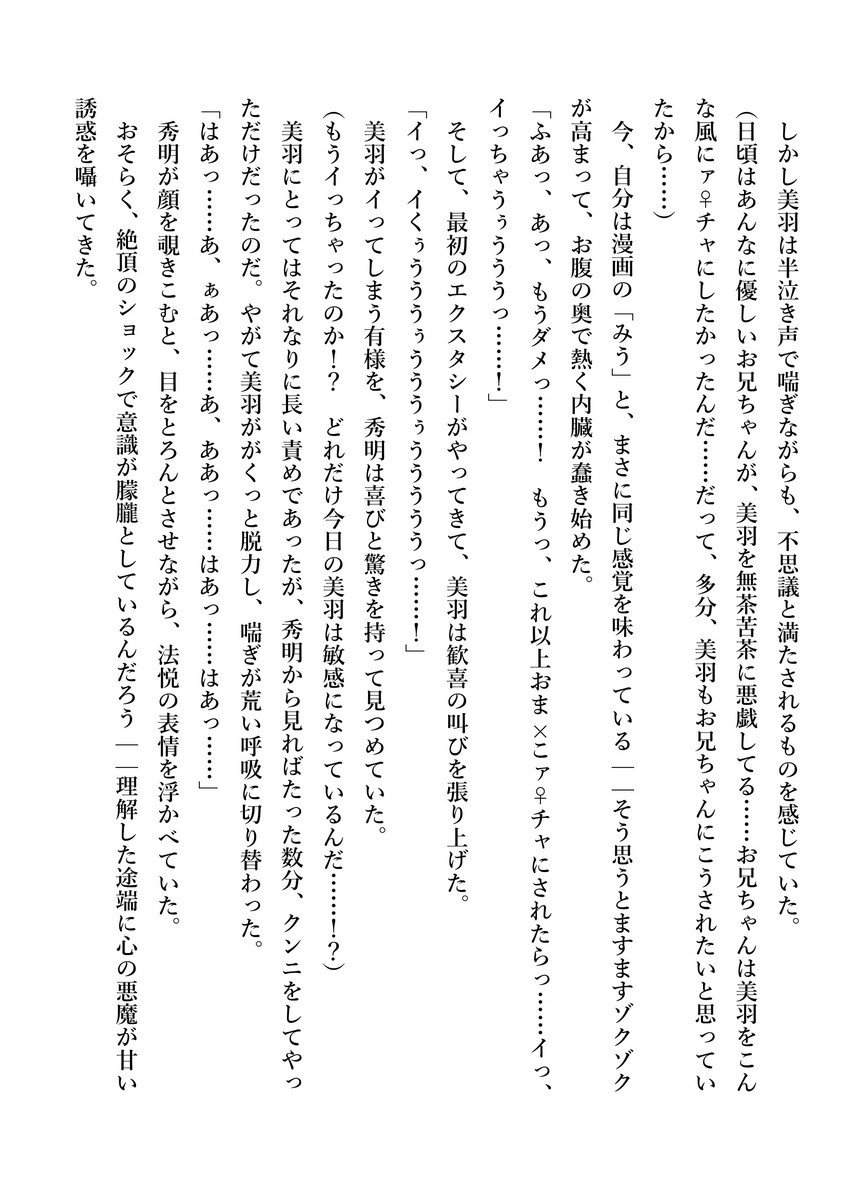 しかし美羽は半泣き声で喘ぎながらも、不思議と満たされるものを感じていた。
(日頃はあんなに優しいお兄ちゃんが、美羽を無茶苦茶に悪戯してる……お兄ちゃんは美羽をこん
な風にァ♀チャにしたかったんだ……だって、多分、美羽もお兄ちゃんにこうされたいと思ってい
たから……)
今、自分は漫画の「みう」と、まさに同じ感覚を味わっている――そう思うとますますゾクゾク
が高まって、お腹の奥で熱く内臓が蠢き始めた。
「ふあっ、あっ、もうダメっ……!　もうっ、これ以上おま×こァ♀チャにされたらっ……イっ、
イっちゃうぅううううっ……!」
そして、最初のエクスタシーがやってきて、美羽は歓喜の叫びを張り上げた。
「イっ、イくぅうううぅうううぅうううううっ……!」
美羽がイってしまう有様を、秀明は喜びと驚きを持って見つめていた。
(もうイっちゃったのか!?　どれだけ今日の美羽は敏感になっているんだ……!?)
美羽にとってはそれなりに長い責めであったが、秀明から見ればたった数分、クンニをしてやっ
ただけだったのだ。やがて美羽ががくっと脱力し、喘ぎが荒い呼吸に切り替わった。
「はあっ……あ、ぁあっ……あ、ああっ……はあっ……はあっ……」
秀明が顔を覗きこむと、目をとろんとさせながら、法悦の表情を浮かべていた。
おそらく、絶頂のショックで意識が朦朧としているんだろう――理解した途端に心の悪魔が甘い
誘惑を囁いてきた。